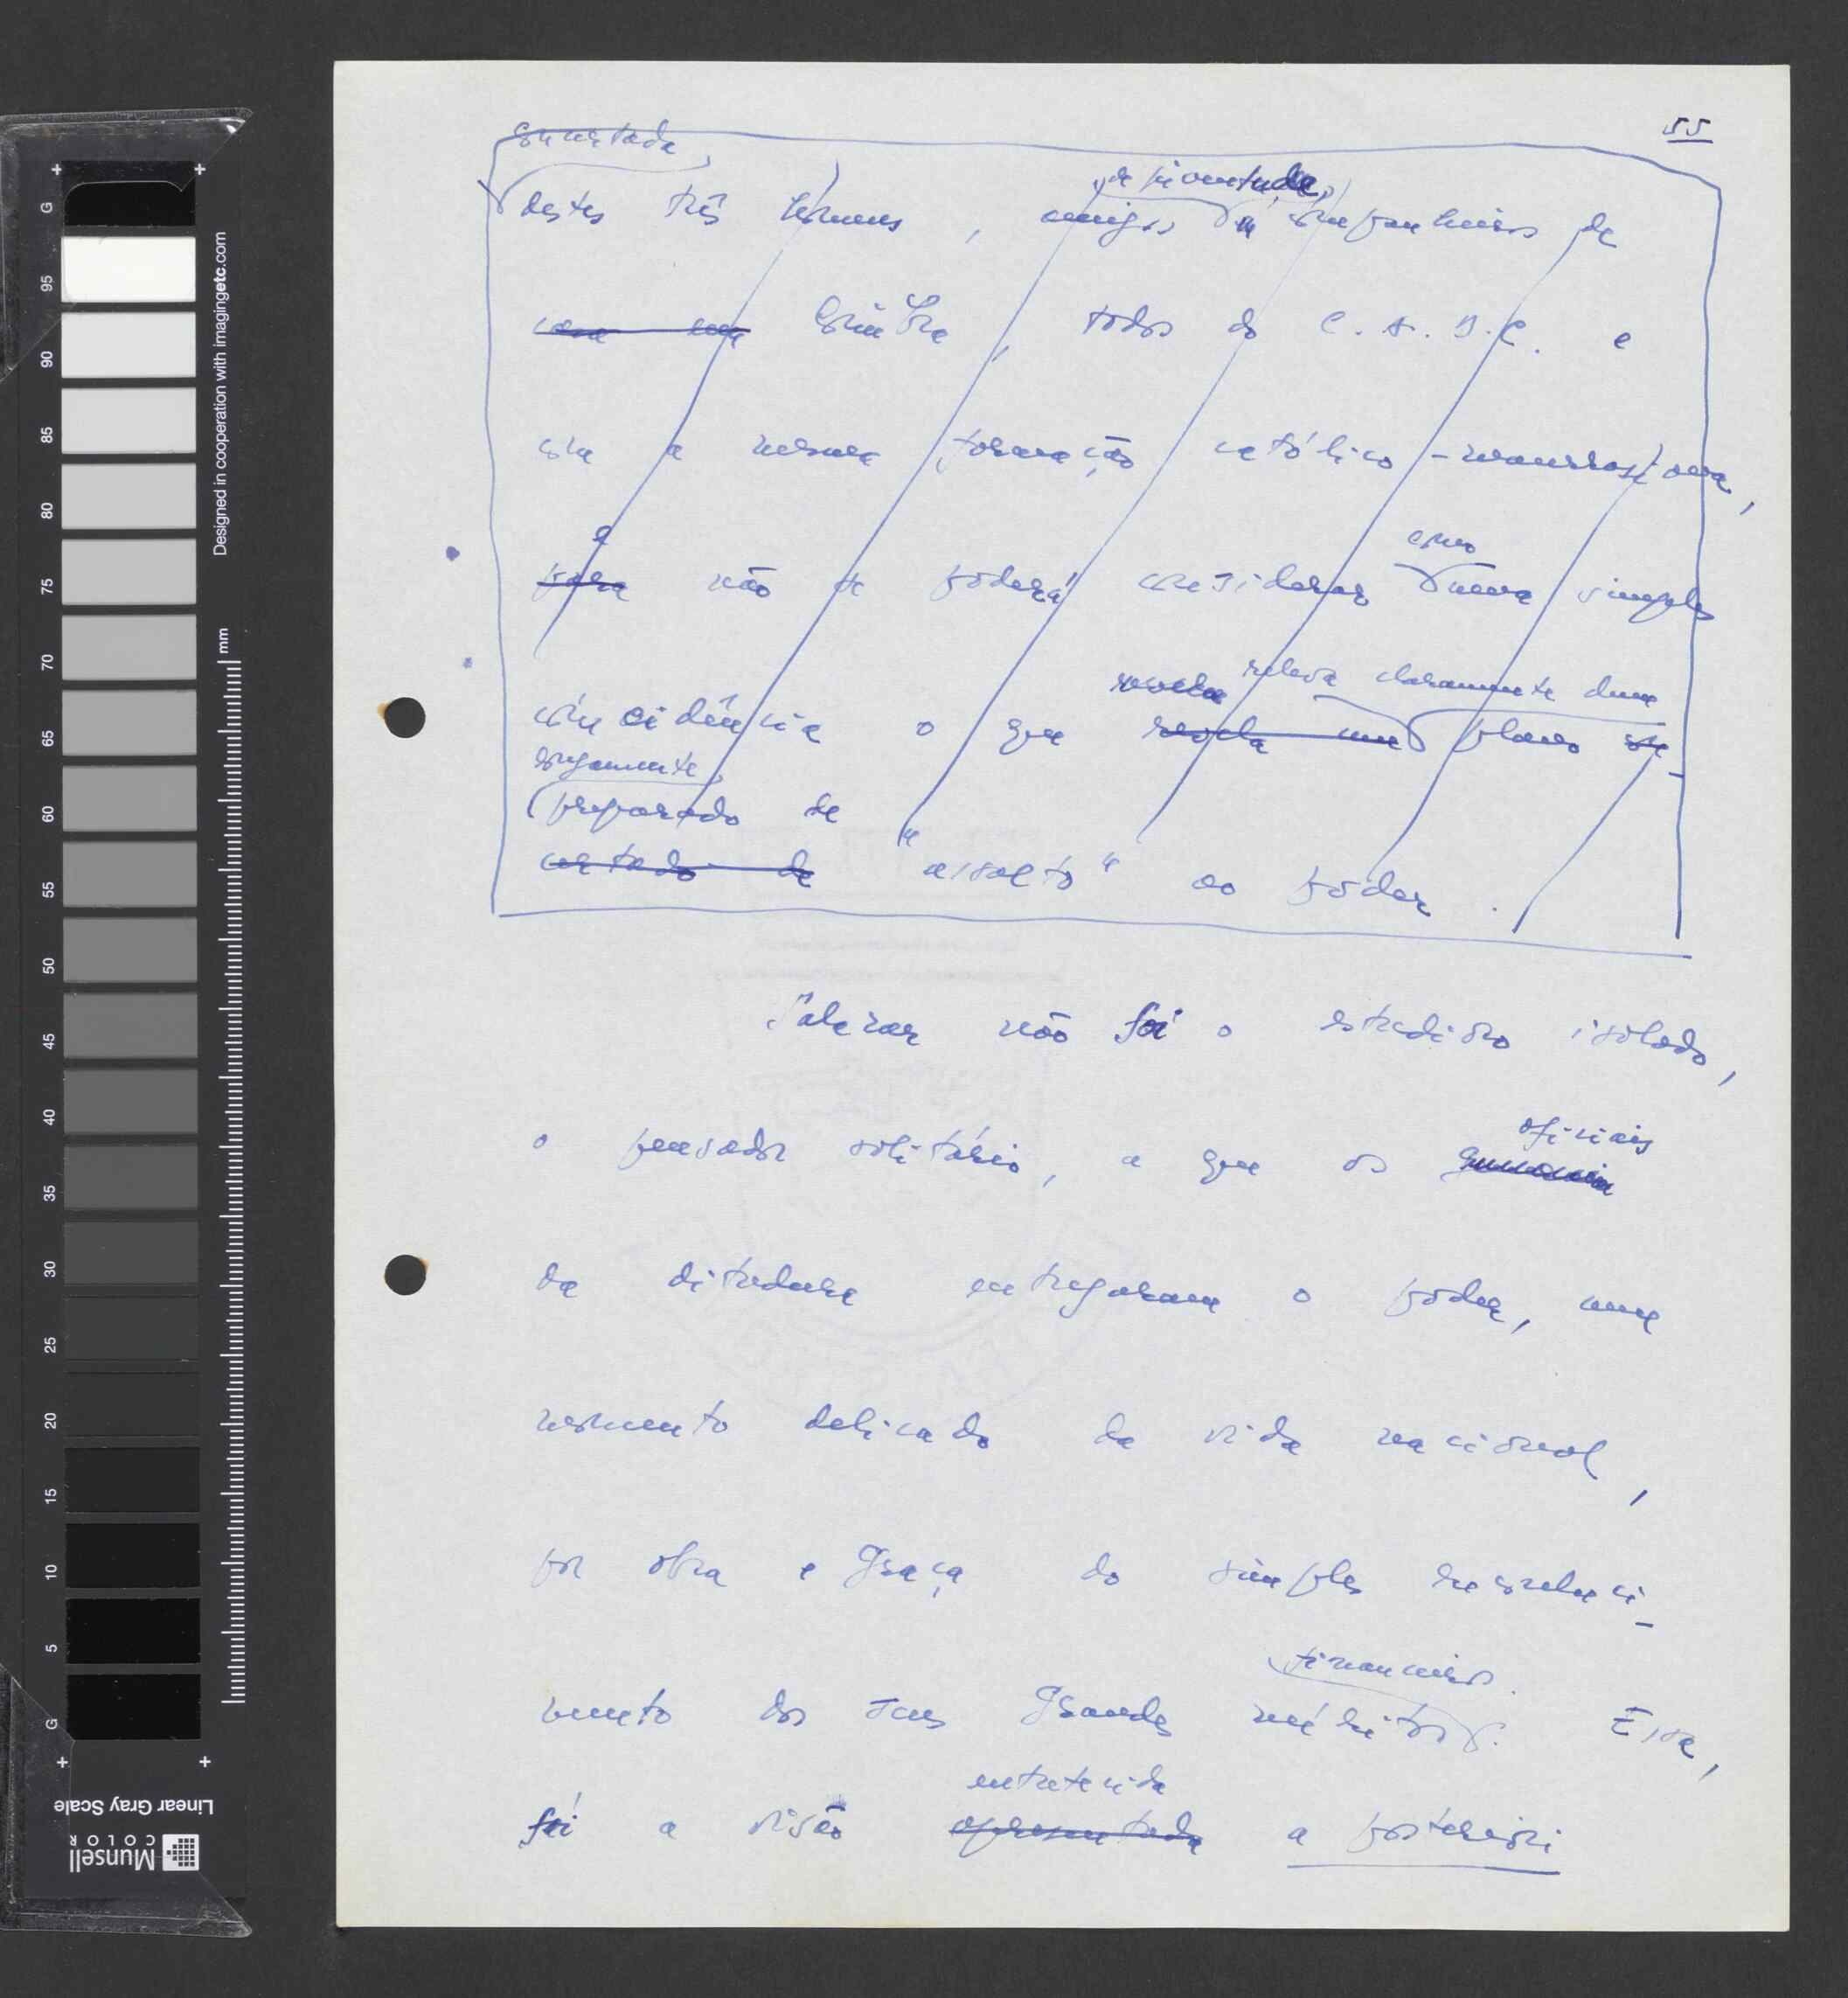 55
concertada,
de juventude,
destes três homens, amigos e companheiros de
Coimbra, todos do C.A.D.C. e
com a mesma formação católico-maurrasiana,
e
como
para não se poderá considerar numa simples
revela releva claramente dum
coincidência o que revela um plano con-
longamente
preparado de
certado de "assalto" ao poder.
Salazar não foi o estudioso isolado,
oficiais
o pensador solitário, a que os
da ditadura entregaram o poder, num
momento delicado da vida nacional,
por obra e graça do simples reconheci-
financeiros.
mento dos seus grandes méritos. Essa,
entretecida
foi a visão apresentada a posteriori
Designed in cooperation with imagingetc.com
mm
G 95 90 85 80 75 70 65 60 55 50 45 40 35 30 25 20 15 10 5 G
Linear Gray Scale
Munsell
COLOR